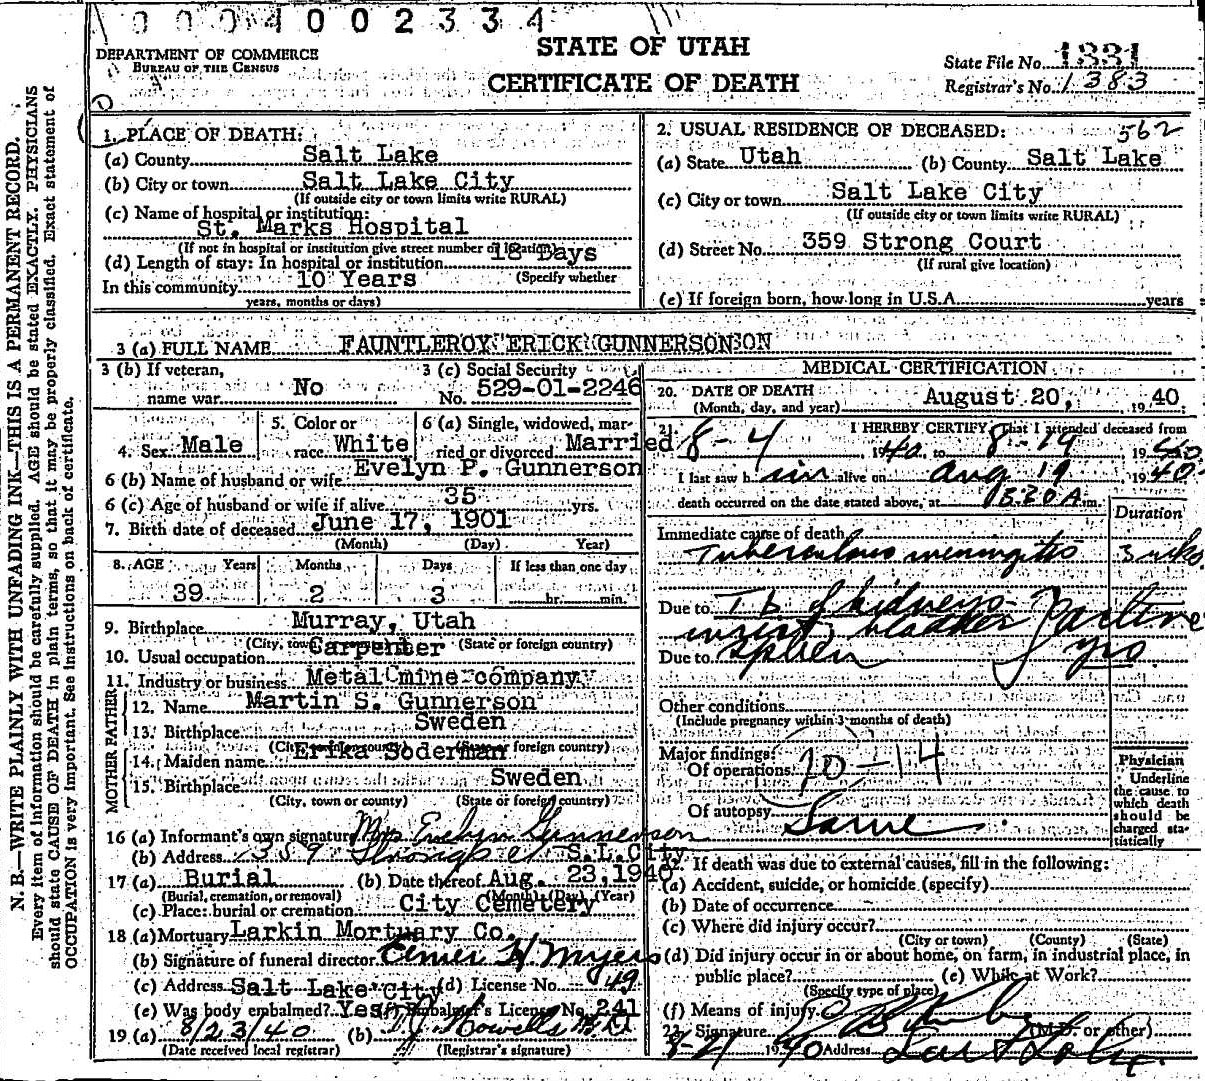 0004002334
DEPARTMENT OF COMMERCE
BUREAU OF THE CENSUS
STATE OF UTAH
CERTIFICATE OF DEATH
State File No. 1331
Registrar's No. 1383
N. B.—WRITE PLAINLY WITH UNFADING INK—THIS IS A PERMANENT RECORD.
Every item of information should be carefully supplied. AGE should be stated EXACTLY. PHYSICIANS
should state CAUSE OF DEATH in plain terms, so that it may be properly classified. Exact statement of
OCCUPATION is very important. See instructions on back of certificate.
1. PLACE OF DEATH:
(a) County Salt Lake
(b) City or town Salt Lake City
(If outside city or town limits write RURAL)
(c) Name of hospital or institution:
St. Marks Hospital
(If not in hospital or institution give street number or location)
(d) Length of stay: In hospital or institution 18 Days
(Specify whether
In this community 10 Years
years, months or days)
2. USUAL RESIDENCE OF DECEASED: 562
(a) State Utah (b) County Salt Lake
(c) City or town Salt Lake City
(If outside city or town limits write RURAL)
(d) Street No. 359 Strong Court
(If rural give location)
(e) If foreign born, how long in U.S.A. years
3 (a) FULL NAME FAUNTLEROY ERICK GUNNERSON
3 (b) If veteran,
name war No
3 (c) Social Security
No. 529-01-2246
4. Sex Male
5. Color or
race White
6 (a) Single, widowed, mar-
ried or divorced Married
6 (b) Name of husband or wife Evelyn P. Gunnerson
6 (c) Age of husband or wife if alive 35 yrs.
7. Birth date of deceased June 17, 1901
(Month) (Day) Year)
8. AGE Years Months Days If less than one day
39 2 3 hr. min.
9. Birthplace Murray, Utah
(City, town or county) (State or foreign country)
10. Usual occupation Carpenter
11. Industry or business Metal mine company
FATHER
12. Name Martin S. Gunnerson
13. Birthplace Sweden
(City, town or county) (State or foreign country)
MOTHER
14. Maiden name Erika Soderman
15. Birthplace Sweden
(City, town or county) (State or foreign country)
16 (a) Informant's own signature Mrs Evelyn Gunnerson
(b) Address 359 Strongs ct S.L.City
17 (a) Burial (b) Date thereof Aug. 23, 1940
(Burial, cremation, or removal) (Month) (Day) (Year)
(c) Place: burial or cremation City Cemetery
18 (a) Mortuary Larkin Mortuary Co.
(b) Signature of funeral director Elmer H Myers
(c) Address Salt Lake City (d) License No. 49
(e) Was body embalmed? Yes (f) Embalmer's License No. 241
19 (a) 8/23/40 (b) T.J. Howells M.D.
(Date received local registrar) (Registrar's signature)
MEDICAL CERTIFICATION
20. DATE OF DEATH
(Month, day, and year) August 20, 1940
21. I HEREBY CERTIFY That I attended deceased from
8-4, 1940, to 8-19 1940
I last saw him alive on Aug 19, 1940
death occurred on the date stated above, at 830 A m.
Duration
Immediate cause of death
Tuberculous meningitis 3 wks.
Due to TB of kidneys
bladder
Due to spleen
active
yrs.
Other conditions
(Include pregnancy within 3 months of death)
Major findings:
Of operations
10-14
Of autopsy
Same
Physician
Underline
the cause to
which death
should be
charged sta-
tistically
22. If death was due to external causes, fill in the following:
(a) Accident, suicide, or homicide (specify)
(b) Date of occurrence
(c) Where did injury occur?
(City or town) (County) (State)
(d) Did injury occur in or about home, on farm, in industrial place, in
public place? (e) While at Work?
(Specify type of place)
(f) Means of injury
23. Signature (M.D. or other)
8-21 1940 Address Salt Lake.